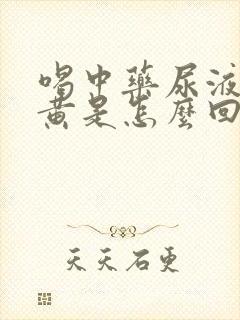 喝中藥尿液
黃是怎麼回
天天石更